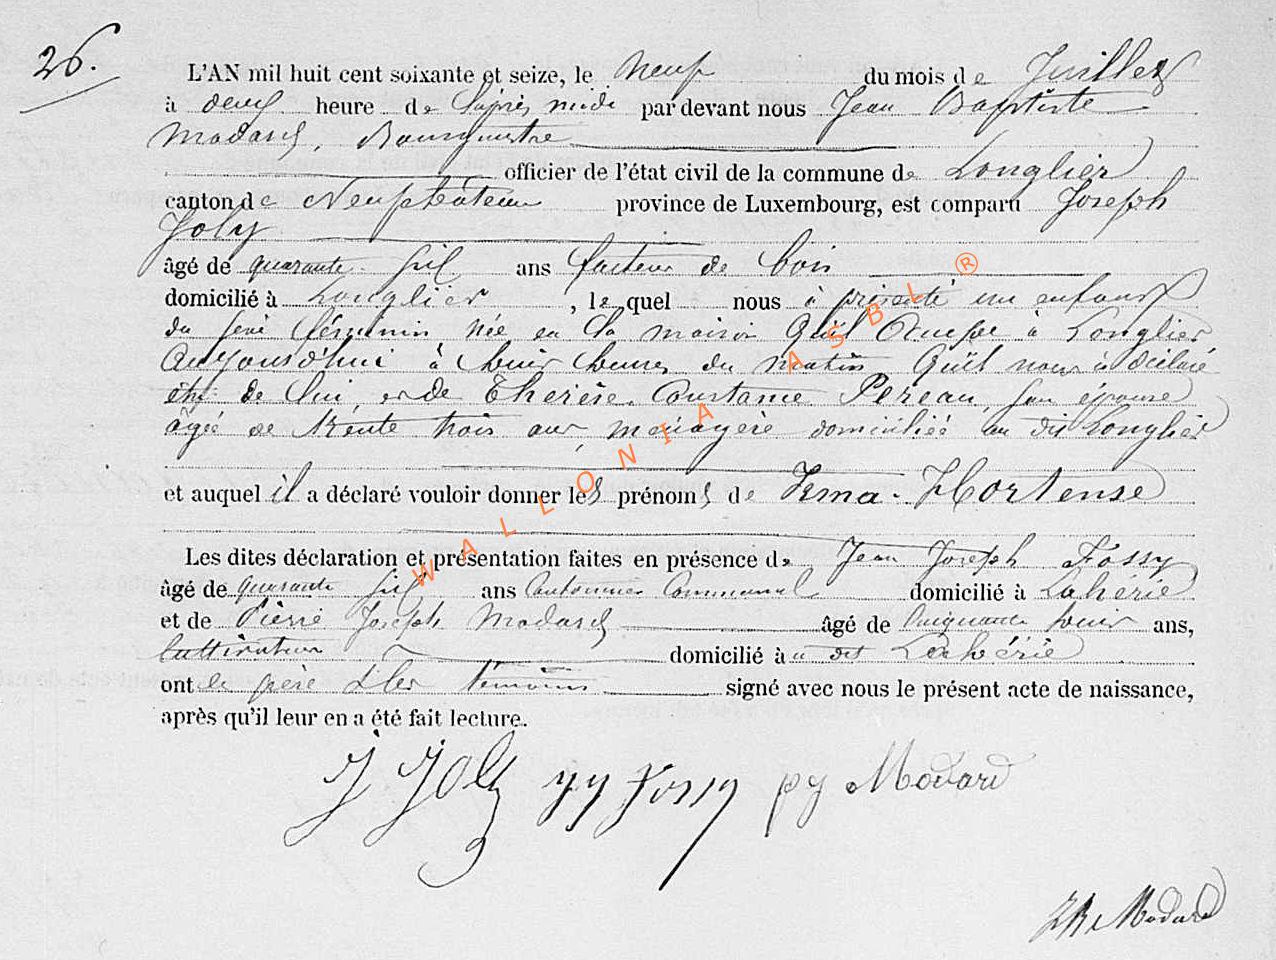 26.
L'AN mil huit cent soixante et seize, le Neuf du mois de Juillet
à deux heure de l'après midi par devant nous Jean Baptiste
Modard, Bourgmestre
officier de l'état civil de la commune de Longlier
canton de Neufchâteau province de Luxembourg, est comparu Joseph
Joly
âgé de quarante six ans facteur de bois
domicilié à Longlier, lequel nous à présenté un enfant
du sexe féminin née en la maison qu'il occupe à Longlier
aujourd'hui à huit heures du matin qu'il nous à déclaré
être de lui, et de Thérèse Constance Pereau, son épouse
âgée de trente trois ans, ménagère domiciliée au dit Longlier
et auquel il a déclaré vouloir donner les prénoms de Irma - Hortense
Les dites déclaration et présentation faites en présence de Jean Joseph Fossy
âgé de quarante six ans Cantonnier Communal domicilié à Lahérie
et de Pierre Joseph Modard âgé de cinquante huit ans,
cultivateur domicilié à u dit Lahérie
ont le père & les témoins signé avec nous le présent acte de naissance,
après qu'il leur en a été fait lecture.
J Joly JJ Fossy PJ Modard
JB Modard
WALLONIA ASBL ®